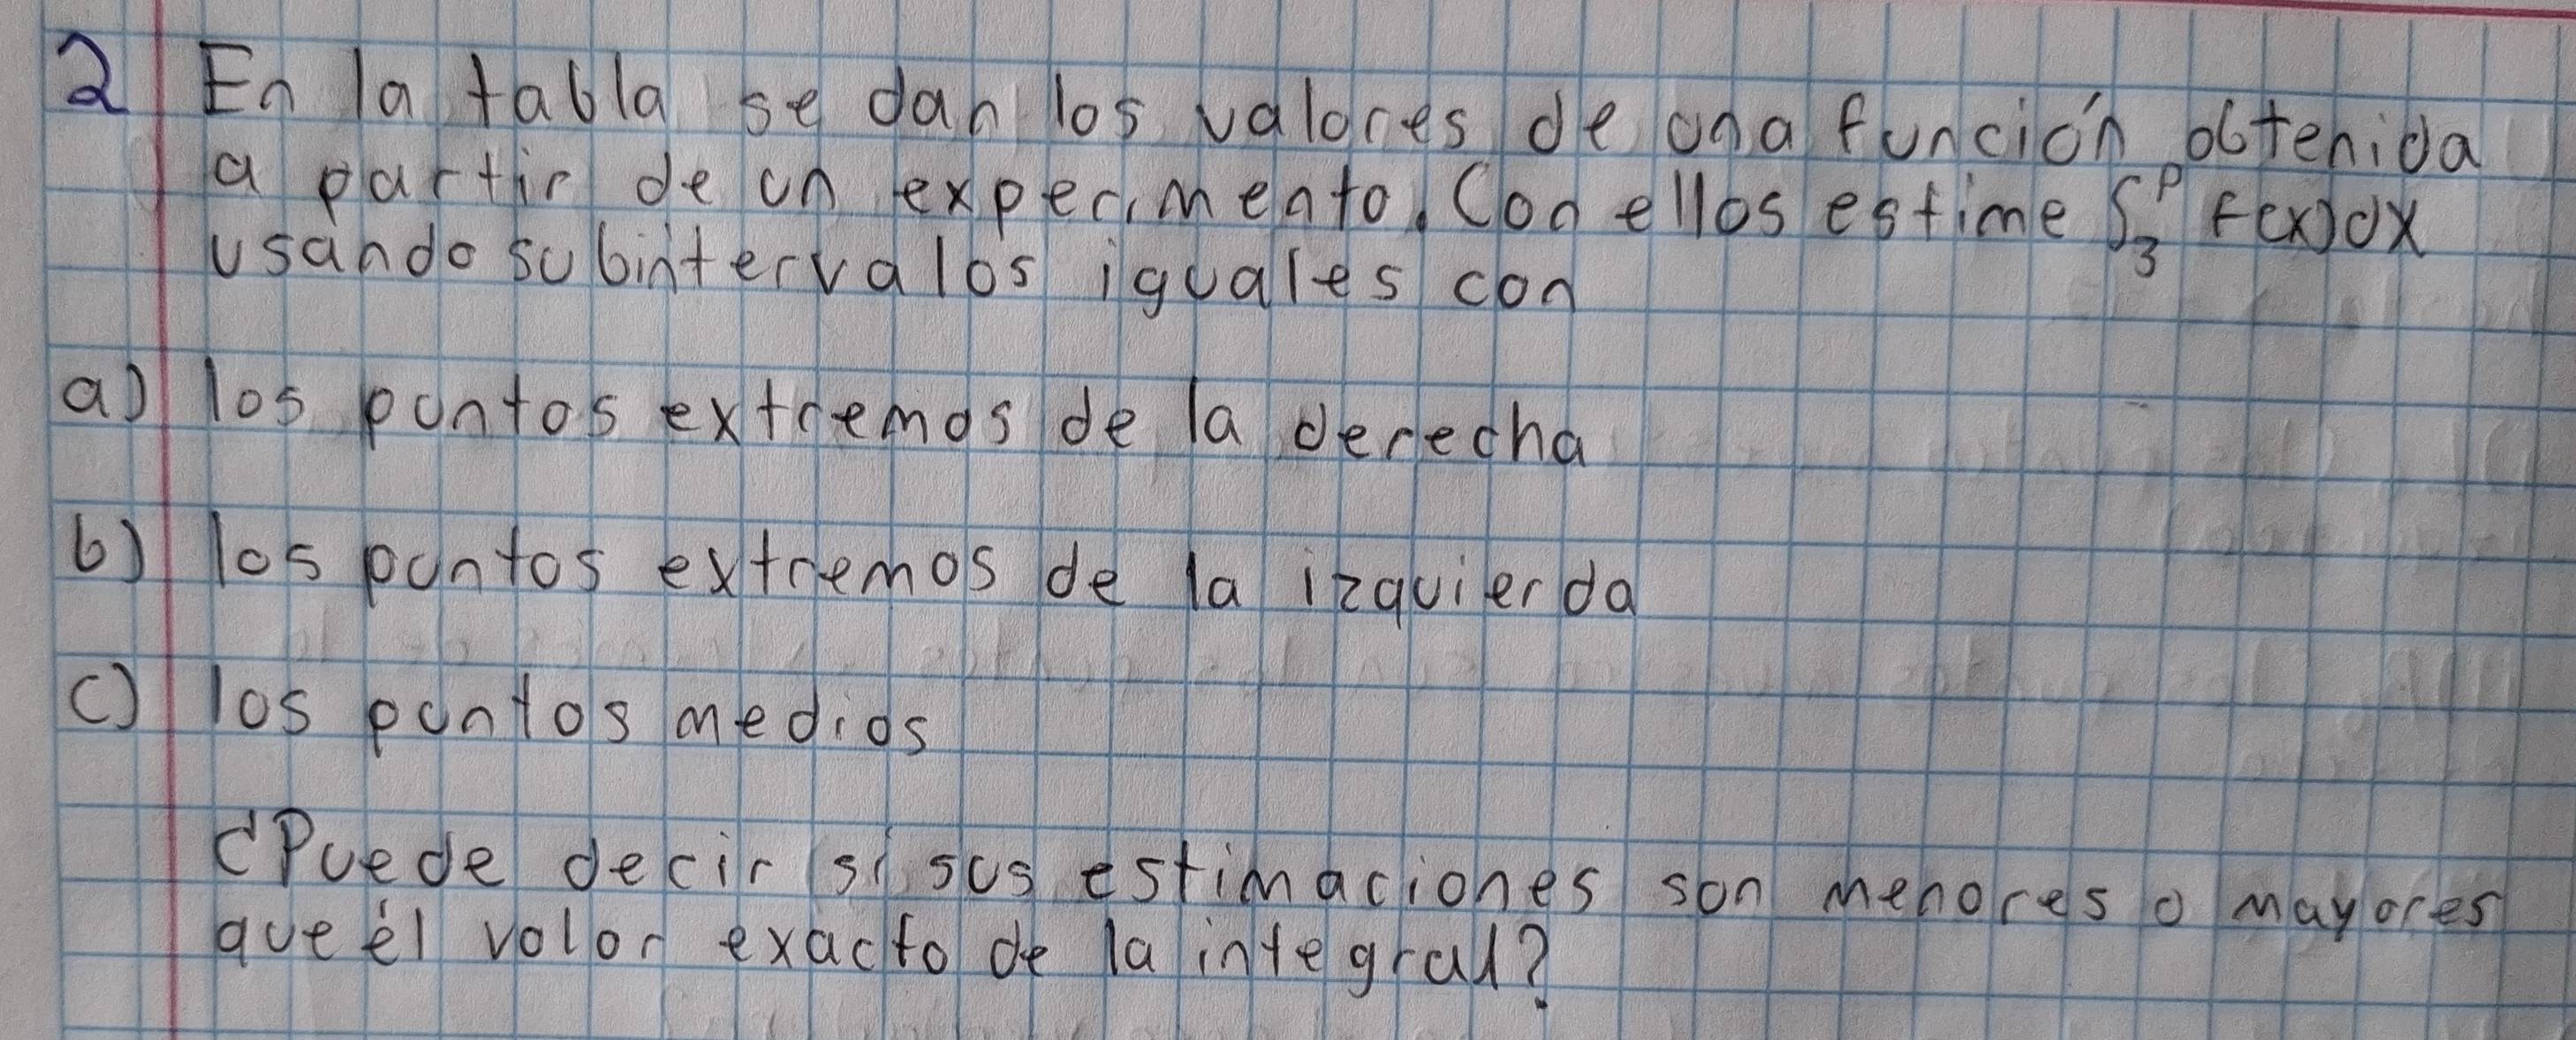 2 En la tabla se dan los valores de una función obtenida
a partir de un experimento. Con ellos estime ∫₃⁹ f(x)dx
usando subintervalos iguales con
a) los puntos extremos de la derecha
b) los puntos extremos de la izquierda
c) los puntos medios
¿Puede decir si sus estimaciones son menores o mayores
que él valor exacto de la integral?